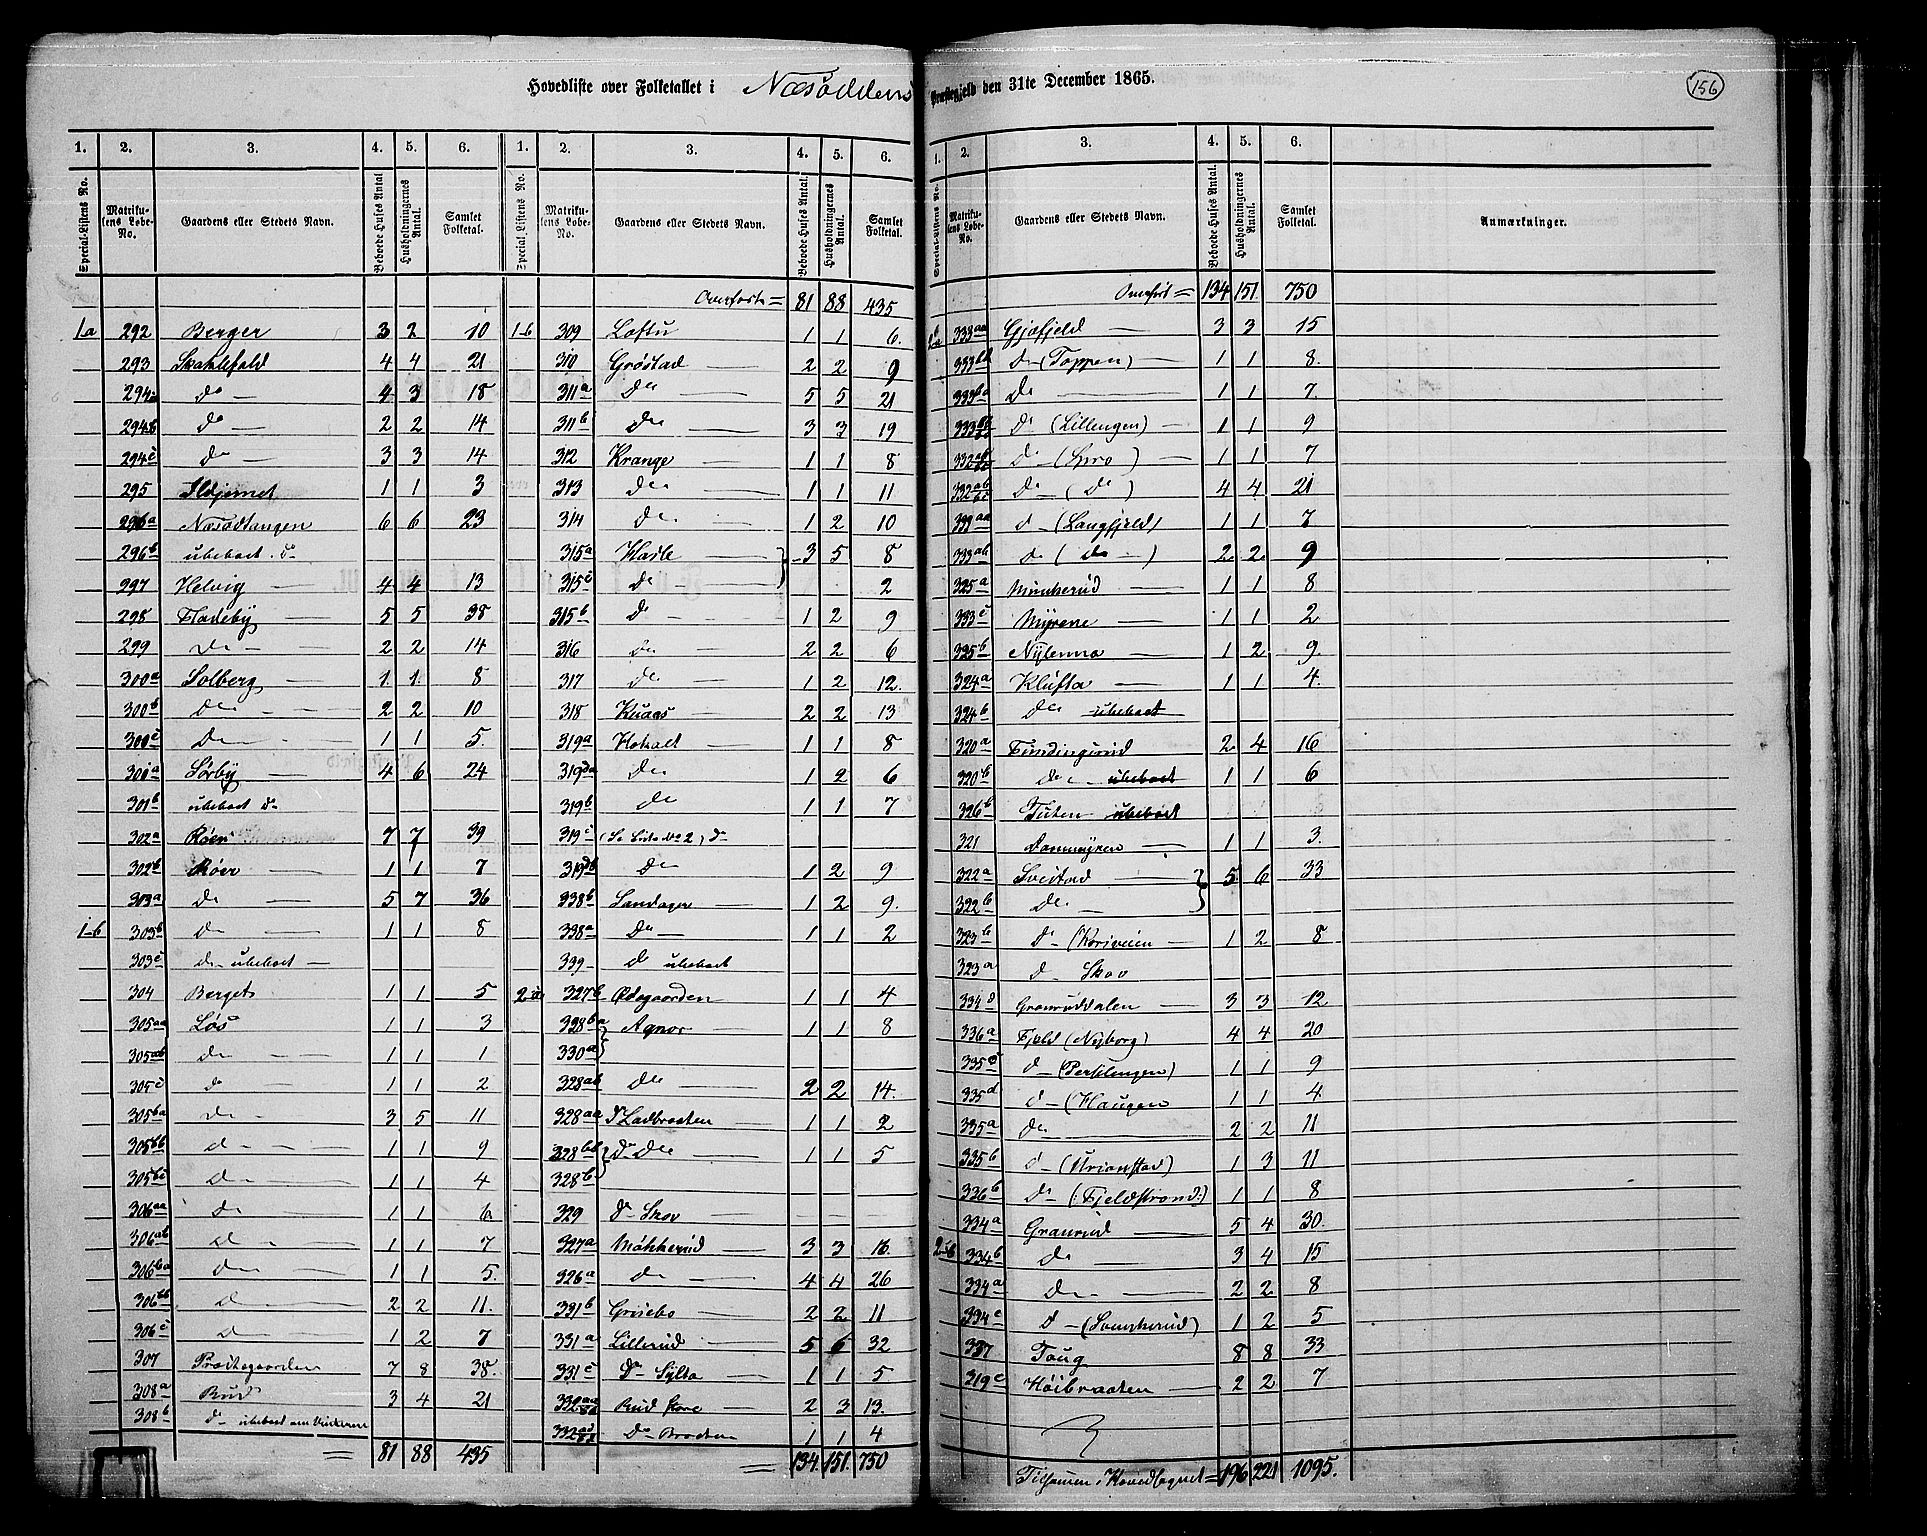 Hovedliste over Folketallet i Næsoddens Præstegjeld den 31te December 1865.
156
1. 2. 3. 4. 5. 6. 1. 2. 3. 4. 5. 6.
Special-Listens No. Matrikulens Løbe-No. Gaardens eller Stedets Navn. Beboede Huses Antal Husholdningernes Antal. Samlet Folketal. Special-Listens No. Matrikulens Løbe-No. Gaardens eller Stedets Navn. Beboede Huses Antal. Husholdningernes Antal. Samlet Folketal.
1a 292 Berger 3 2 10
293 Skoklefald 4 4 21
294a do 4 3 18
294b do 2 2 14
294c do 3 3 14
295 Ildjernet 1 1 3
296a Næsodtangen 6 6 23
296b ubeboet do
297 Helvig 4 4 13
298 Fladeby 5 5 38
299 do 2 2 14
300a Solberg 1 1 8
300b do 2 2 10
300c do 1 1 5.
301a Sørby 4 6 24
301b ubeboet do
302a Røer 7 7 39
302b Røer 1 1 7
303a do 5 7 36
1-b 303b do 1 1 8
303c do ubeboet
304 Berget 1 1 5
305aa Løs 1 1 3
305ab do 1 1 1
305c do 1 1 2
305ba do 3 5 11
305bb do 1 1 9
305bc do 1 1 4
306aa do 1 1 6
306ab do 1 1 7
306ba do 1 1 5.
306bb do 2 2 11.
306c do 1 2 7
307 Præstegaarden 7 8 38.
308a Rud 3 4 21
308b do ubeboet om Vinteren
= 81 88 435
Overført = 81 88 435
1-b 309 Loftu 1 1 6.
310 Grøstad 2 2 9
311a do 5 5 21
311b do 3 3 19
312 Krange 1 1 8
313 do 1 1 11
314 do 1 2 10
315a Hasle 3 5 8
315c do 2
315b do 1 2 9
316 do 2 2 6
317 do 1 2 12.
318 Knaas 2 2 13
319a Hokalt 1 1 8
319da do 1 2 6
319b do 1 1 7
319c (Se Liste No 2) do
319db do 1 2 9
338b Sandager 1 2 9.
338a do 1 1 2
339 do ubeboet
2-a 327b Ødegaarden 1 1 4
328ba Agnor 1 1 8
330aa
328ab do 2 2 14.
328aa do Ladbraaten 1 1 2
328bb do do 1 1 5
328b
329 do Skov
327a Mökkerud 3 3 16.
326a do 4 4 26
331b Grisebo 2 2 11
331a Lillerud 5 6 32
331c do Sylta 1 1 5
332 Rud store 2 3 13.
332 do Braaten 1 1 4
= 134. 151. 750
1. 2. 3. 4. 5. 6.
Special-Listens No. Matrikulens Løbe-No. Gaardens eller Stedets Navn. Beboede Huses Antal. Husholdningernes Antal. Samlet Folketal. Anmærkninger.
Overført = 134 151 750
333aa Gjøfjeld 3 3 15
do (Toppen) 1 1 8.
333ba do 1 1 7.
do (Lillengen) 1 1 9
do 1 1 7
do (do) 4 4 21
do (Langfjeld) 1 1 7
333ab do (do) 2 2 9
325a Munkerud 1 1 8
333c Myrene 1 1 2
325b Nylenna 1 2 9.
324a Klufta 1 1 4.
324b do ubeboet
320a Fundingsrud 2 4 16
320b do ubeboet 1 1 6
326b Tuten ubeboet
321 Dammyren 1 1 3.
322a Svestad 5 6 33
322b do
323b do (Korsveien 1 2 8
323a do Skov
334d Granruddalen 3 3 12
336a Fjeld (Nyborg) 4 4 20
335c do (Persellengen) 1 1 9
335d do (Haugen 1 1 4
335a do 2 2 11
335b do (Urianstad) 1 3 11
336b do (:Fjeldstrand:) 1 1 8
334a Granrud 5 4 30.
2-b 334b do 3 4 15
334a do 2 2 8
334c do (Svenskerud) 1 2 5
337 Toug 8 8 33
319c Høibraaten 2 2 7
Tilsammen i Hovedsognet = 196 221 1095.